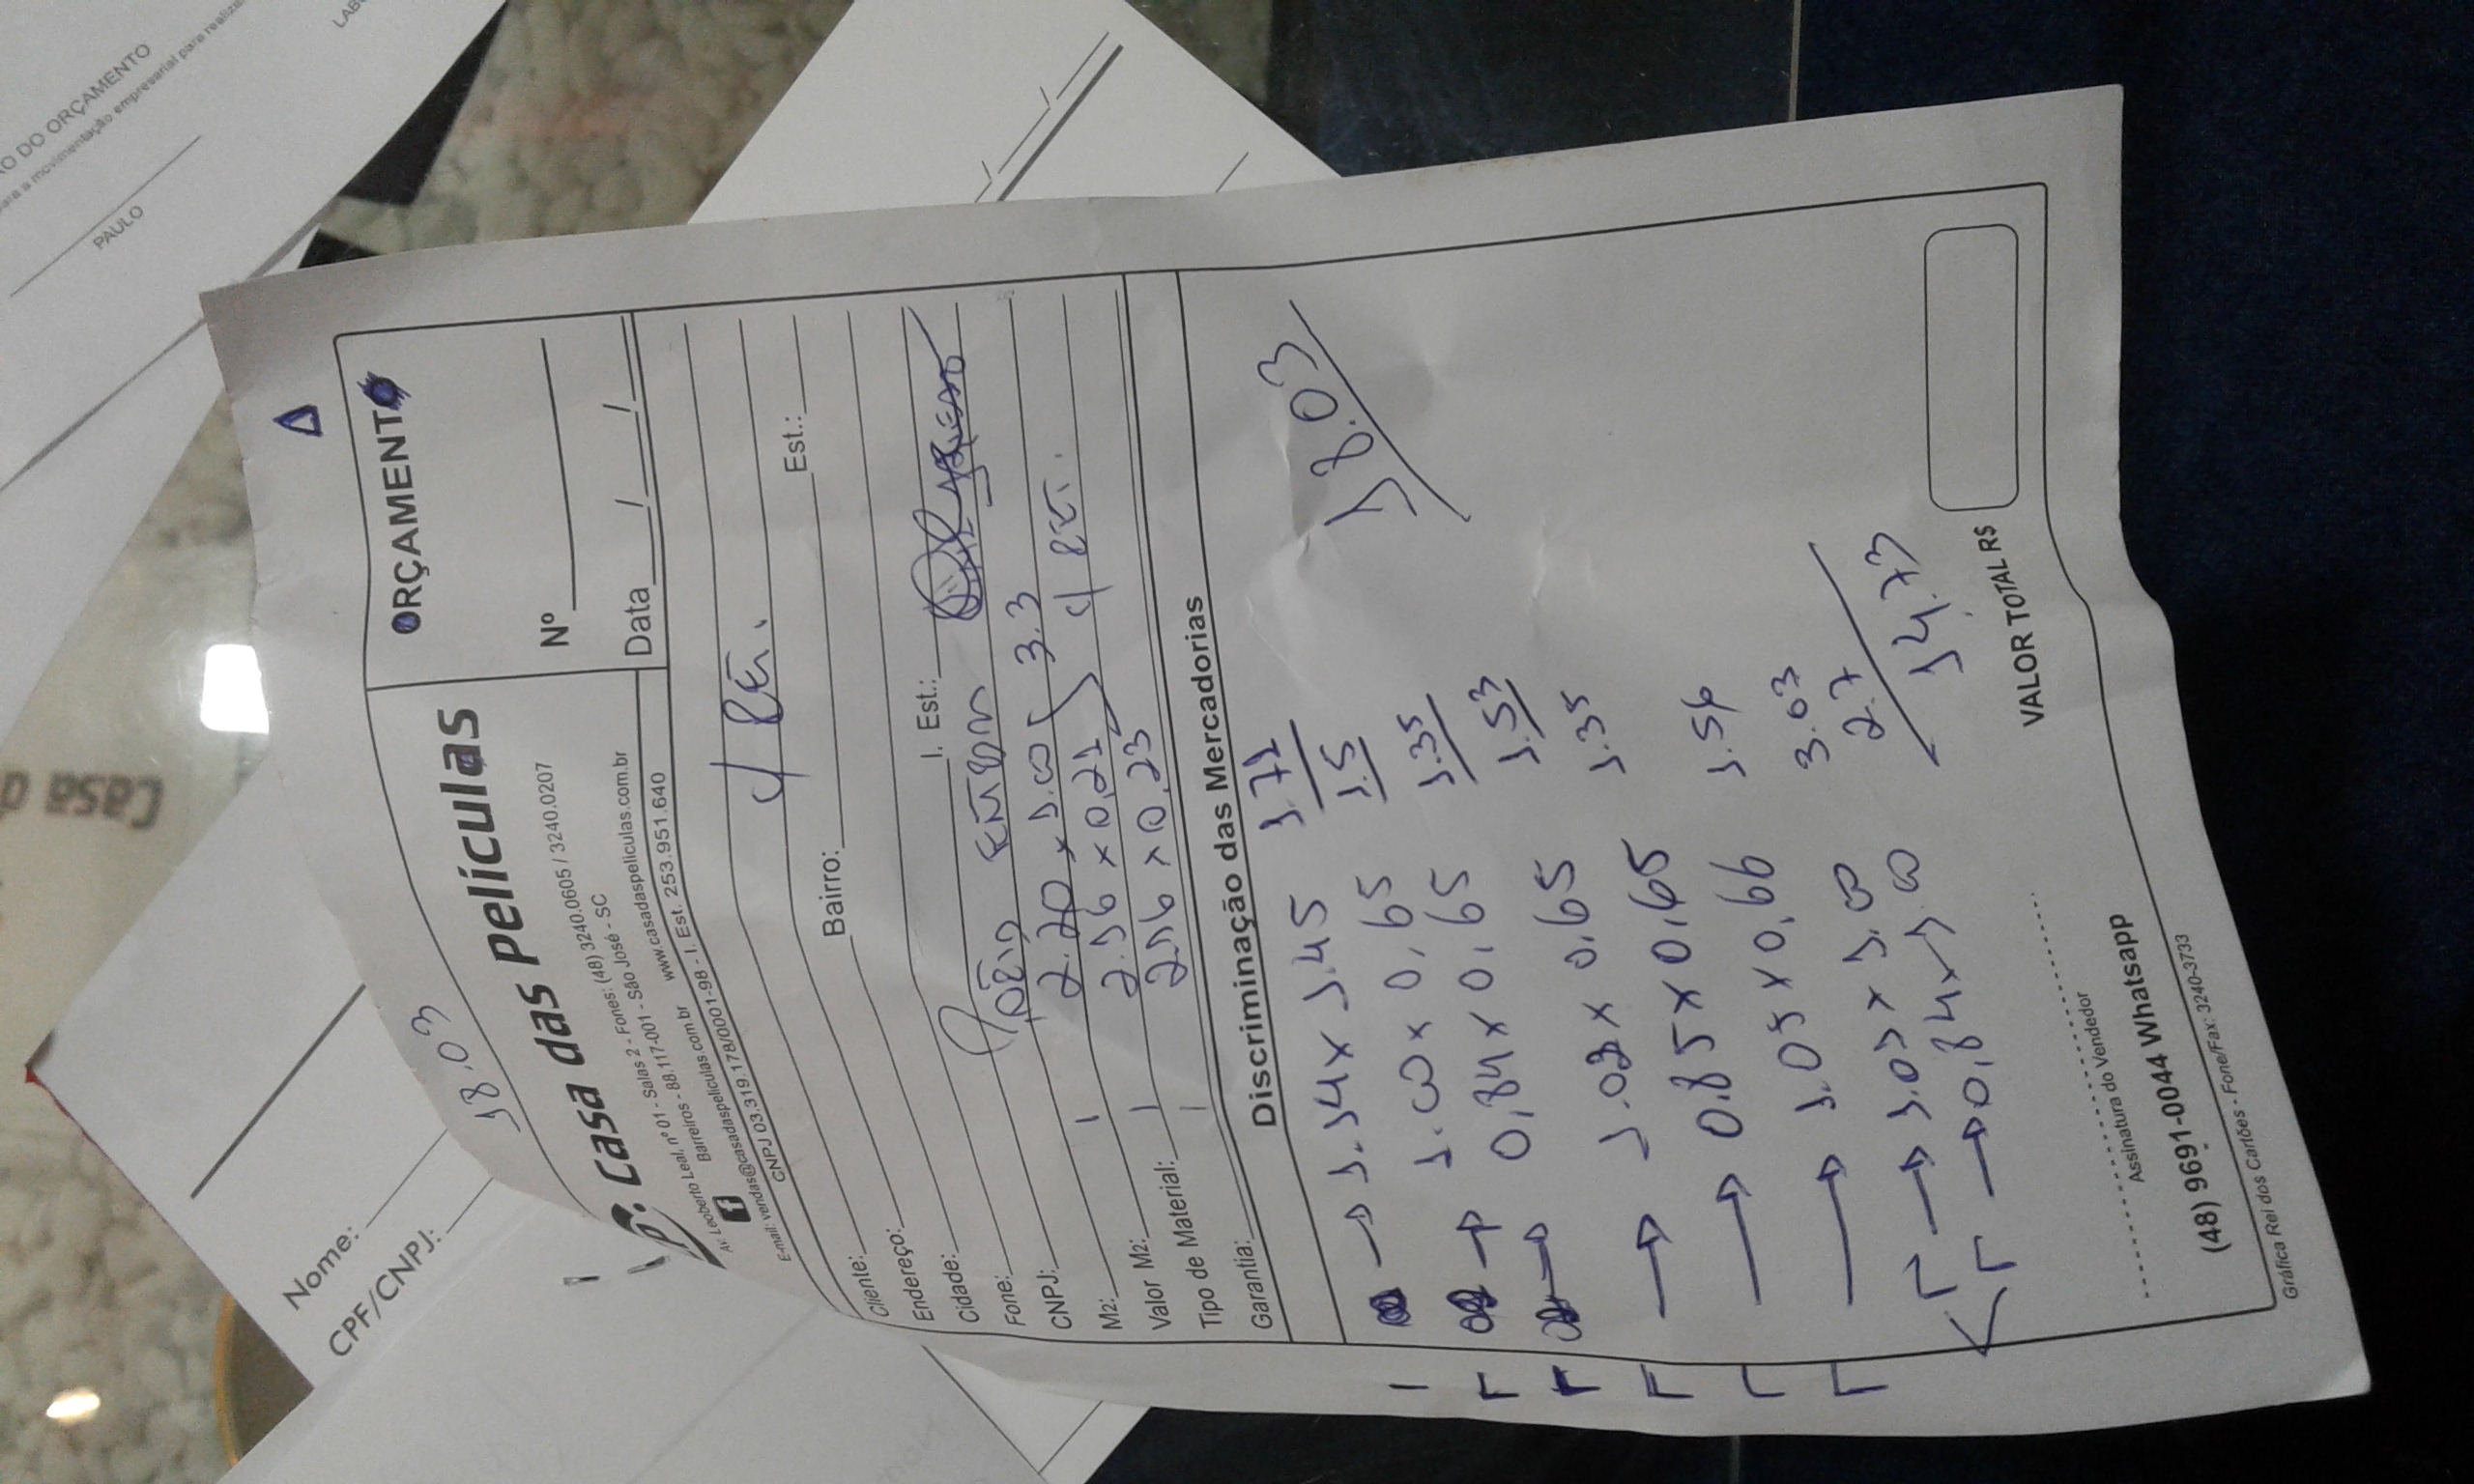 ÇÃO DO ORÇAMENTO
para a movimentação empresarial para realiza
PAULO
LAB
Casa d
Nome:
CPF/CNPJ:
18.03
Casa das Películas
Av. Leoberto Leal, nº 01 - Salas 2 - Fones: (48) 3240.0605 / 3240.0207
Barreiros - 88.117-001 - São José - SC
E-mail: vendas@casadaspeliculas.com.br www.casadaspeliculas.com.br
CNPJ 03.319.178/0001-98 - I. Est. 253.951.640
ORÇAMENTO
Nº
Data / /
Cliente: c/ RET.
Endereço:
Cidade: Bairro: Est.:
Fone:
CNPJ: I. Est.:
M2:
2.20 x 1.00 3.3
Valor M2: 2.56 x 0.21 c/ RET.
Tipo de Material: 2.56 x 0.23
Garantia:
Discriminação das Mercadorias
→ 1.14 x 1.45 1.72
→ 1.00 x 0,65 1.5
→ 0,84 x 0,65 1.35
→ 1.02 x 0,65 1.53
→ 0.85 x 0,65 1.35
→ 1.05 x 0,66 1.56
→ 1.05 x 1.00 3.03
→ 0,84 x 1.00 2.7
14.73
18.03
VALOR TOTAL R$
Assinatura do Vendedor
(48) 9691-0044 Whatsapp
Gráfica Rei dos Cartões - Fone/Fax: 3240-3733